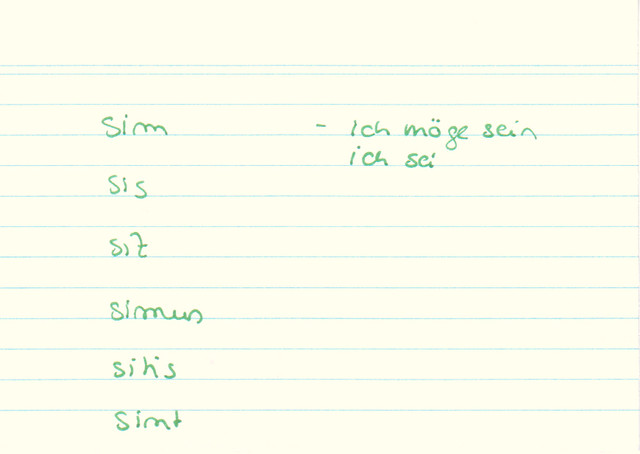 Sim - ich möge sein
ich sei
sis
sit
simus
sitis
sint